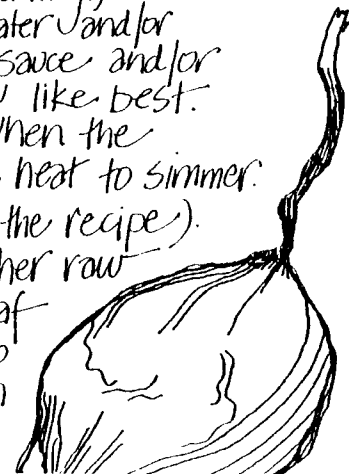 ater and/or
sauce and/or
like best.
when the
heat to simmer.
the recipe).
her raw
af